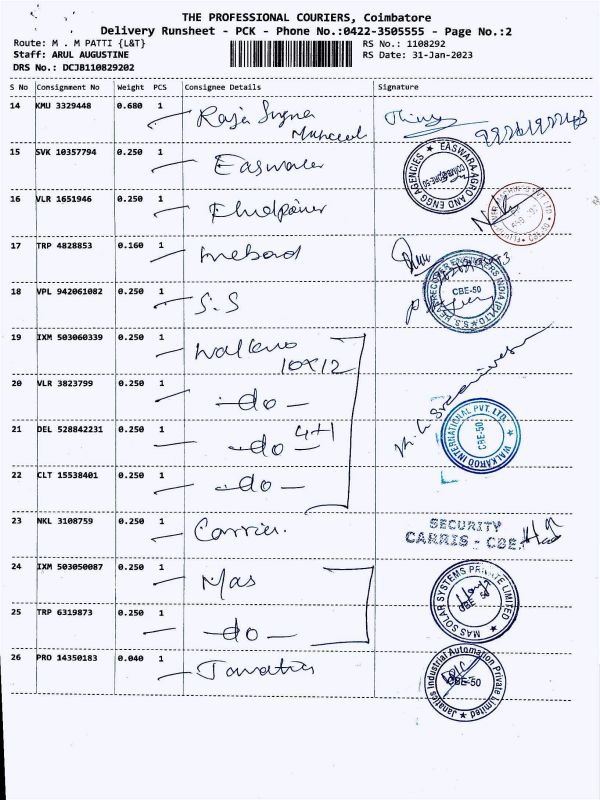 THE PROFESSIONAL COURIERS, Coimbatore
Delivery Runsheet - PCK - Phone No.:0422-3505555 - Page No.:2
Route: M . M PATTI {L&T}
RS No.: 1108292
Staff: ARUL AUGUSTINE
RS Date: 31-Jan-2023
DRS No.: DCJB110829202
S No Consignment No Weight PCS Consignee Details Signature
14 KMU 3329448 0.680 1 Raja
15 SVK 10357794 0.250 1 Easwara
EASWARA AGRO AND ENGG AGENCIES
16 VLR 1651946 0.250 1
17 TRP 4828853 0.160 1
18 VPL 942061082 0.250 1 S.S
CBE-50
19 IXM 503060339 0.250 1
10x12
20 VLR 3823799 0.250 1 -do-
21 DEL 528842231 0.250 1 -do- 4+1
WALKAROO INTERNATIONAL PVT. LTD.
CBE-50
22 CLT 15538401 0.250 1 -do-
23 NKL 3108759 0.250 1 Carrier.
SECURITY
CARRIS - CBE.
24 IXM 503050087 0.250 1 Mas
MAS SOLAR SYSTEMS PRIVATE LIMITED
CBE 50
25 TRP 6319873 0.250 1 -do-
26 PRO 14350183 0.040 1 Janatics
Janatics Industrial Automation Private Limited
CBE-50